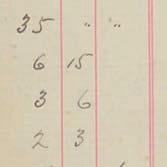 35 " "
6 15
3 6
2 3